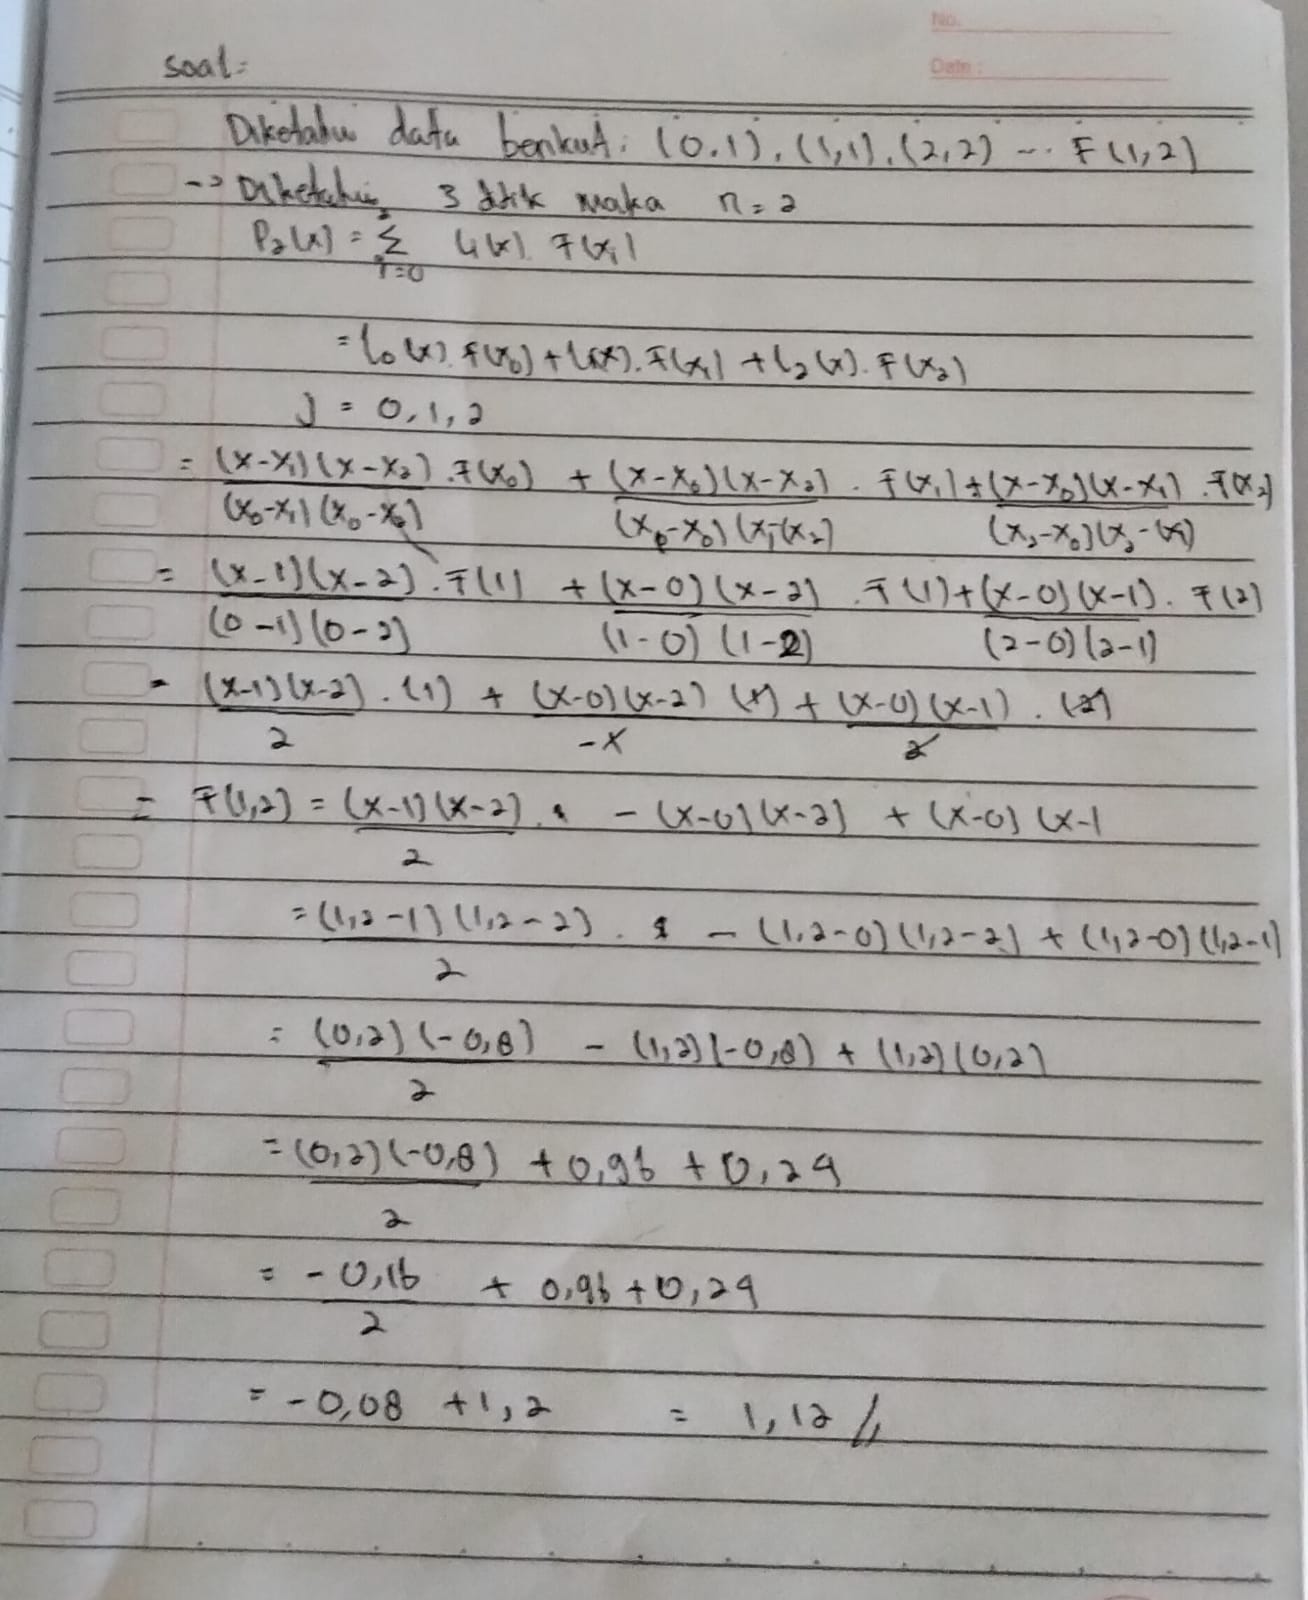 No.
Date :
soal:
Diketahui data berikut: (0,1), (1,1), (2,2) ... F(1,2)
-> Diketahui 3 titik maka n = 2
P₂(x) = Σ²ᵢ₌₀ Lᵢ(x). F(xᵢ)
= L₀(x). F(x₀) + L₁(x). F(x₁) + L₂(x). F(x₂)
J = 0, 1, 2
= (x-x₁)(x-x₂) . F(x₀) + (x-x₀)(x-x₂) . F(x₁) + (x-x₀)(x-x₁) . F(x₂)
(x₀-x₁)(x₀-x₂) (x₁-x₀)(x₁-x₂) (x₂-x₀)(x₂-x₁)
= (x-1)(x-2) . F(1) + (x-0)(x-2) . F(1) + (x-0)(x-1) . F(2)
(0-1)(0-2) (1-0)(1-2) (2-0)(2-1)
= (x-1)(x-2) . (1) + (x-0)(x-2) (1) + (x-0)(x-1) . (2)
2 -1 2
= F(1,2) = (x-1)(x-2) . - (x-0)(x-2) + (x-0)(x-1
2
= (1,2-1)(1,2-2) . - (1,2-0)(1,2-2) + (1,2-0)(1,2-1)
2
= (0,2)(-0,8) - (1,2)(-0,8) + (1,2)(0,2)
2
= (0,2)(-0,8) + 0,96 + 0,24
2
= -0,16 + 0,96 + 0,24
2
= -0,08 + 1,2 = 1,12 //